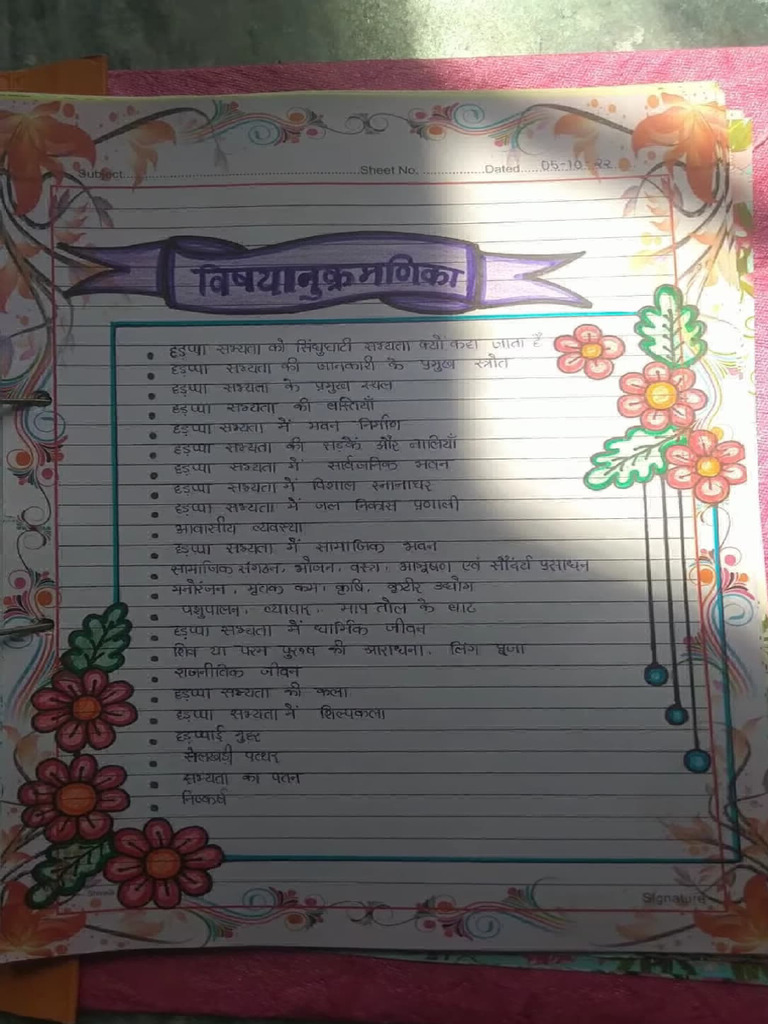 Subject............ Sheet No. ............ Dated...... 05-10-22
विषयानुक्रमणिका
• हड़प्पा सभ्यता को सिंधुघाटी सभ्यता क्यों कहा जाता है
• हड़प्पा सभ्यता की जानकारी के प्रमुख स्त्रोत
• हड़प्पा सभ्यता के प्रमुख स्थल
• हड़प्पा सभ्यता की बस्तियाँ
• हड़प्पा सभ्यता में भवन निर्माण
• हड़प्पा सभ्यता की सड़कें और नालियाँ
• हड़प्पा सभ्यता में सार्वजनिक भवन
• हड़प्पा सभ्यता में विशाल स्नानाघर
• हड़प्पा सभ्यता में जल निकास प्रणाली
• आवासीय व्यवस्था
• हड़प्पा सभ्यता में सामाजिक भवन
• सामाजिक संगठन, भोजन, वस्त्र, आभूषण एवं सौंदर्य प्रसाधन
• मनोरंजन, मृतक कर्म, कृषि, कुटीर उद्योग
• पशुपालन, व्यापार, माप तोल के बाट
• हड़प्पा सभ्यता में धार्मिक जीवन
• शिव या परम पुरुष की आराधना, लिंग पूजा
• राजनीतिक जीवन
• हड़प्पा सभ्यता की कला
• हड़प्पा सभ्यता में शिल्पकला
• हड़प्पाई मुहर
• सेलखड़ी पत्थर
• सभ्यता का पतन
• निष्कर्ष
Signature